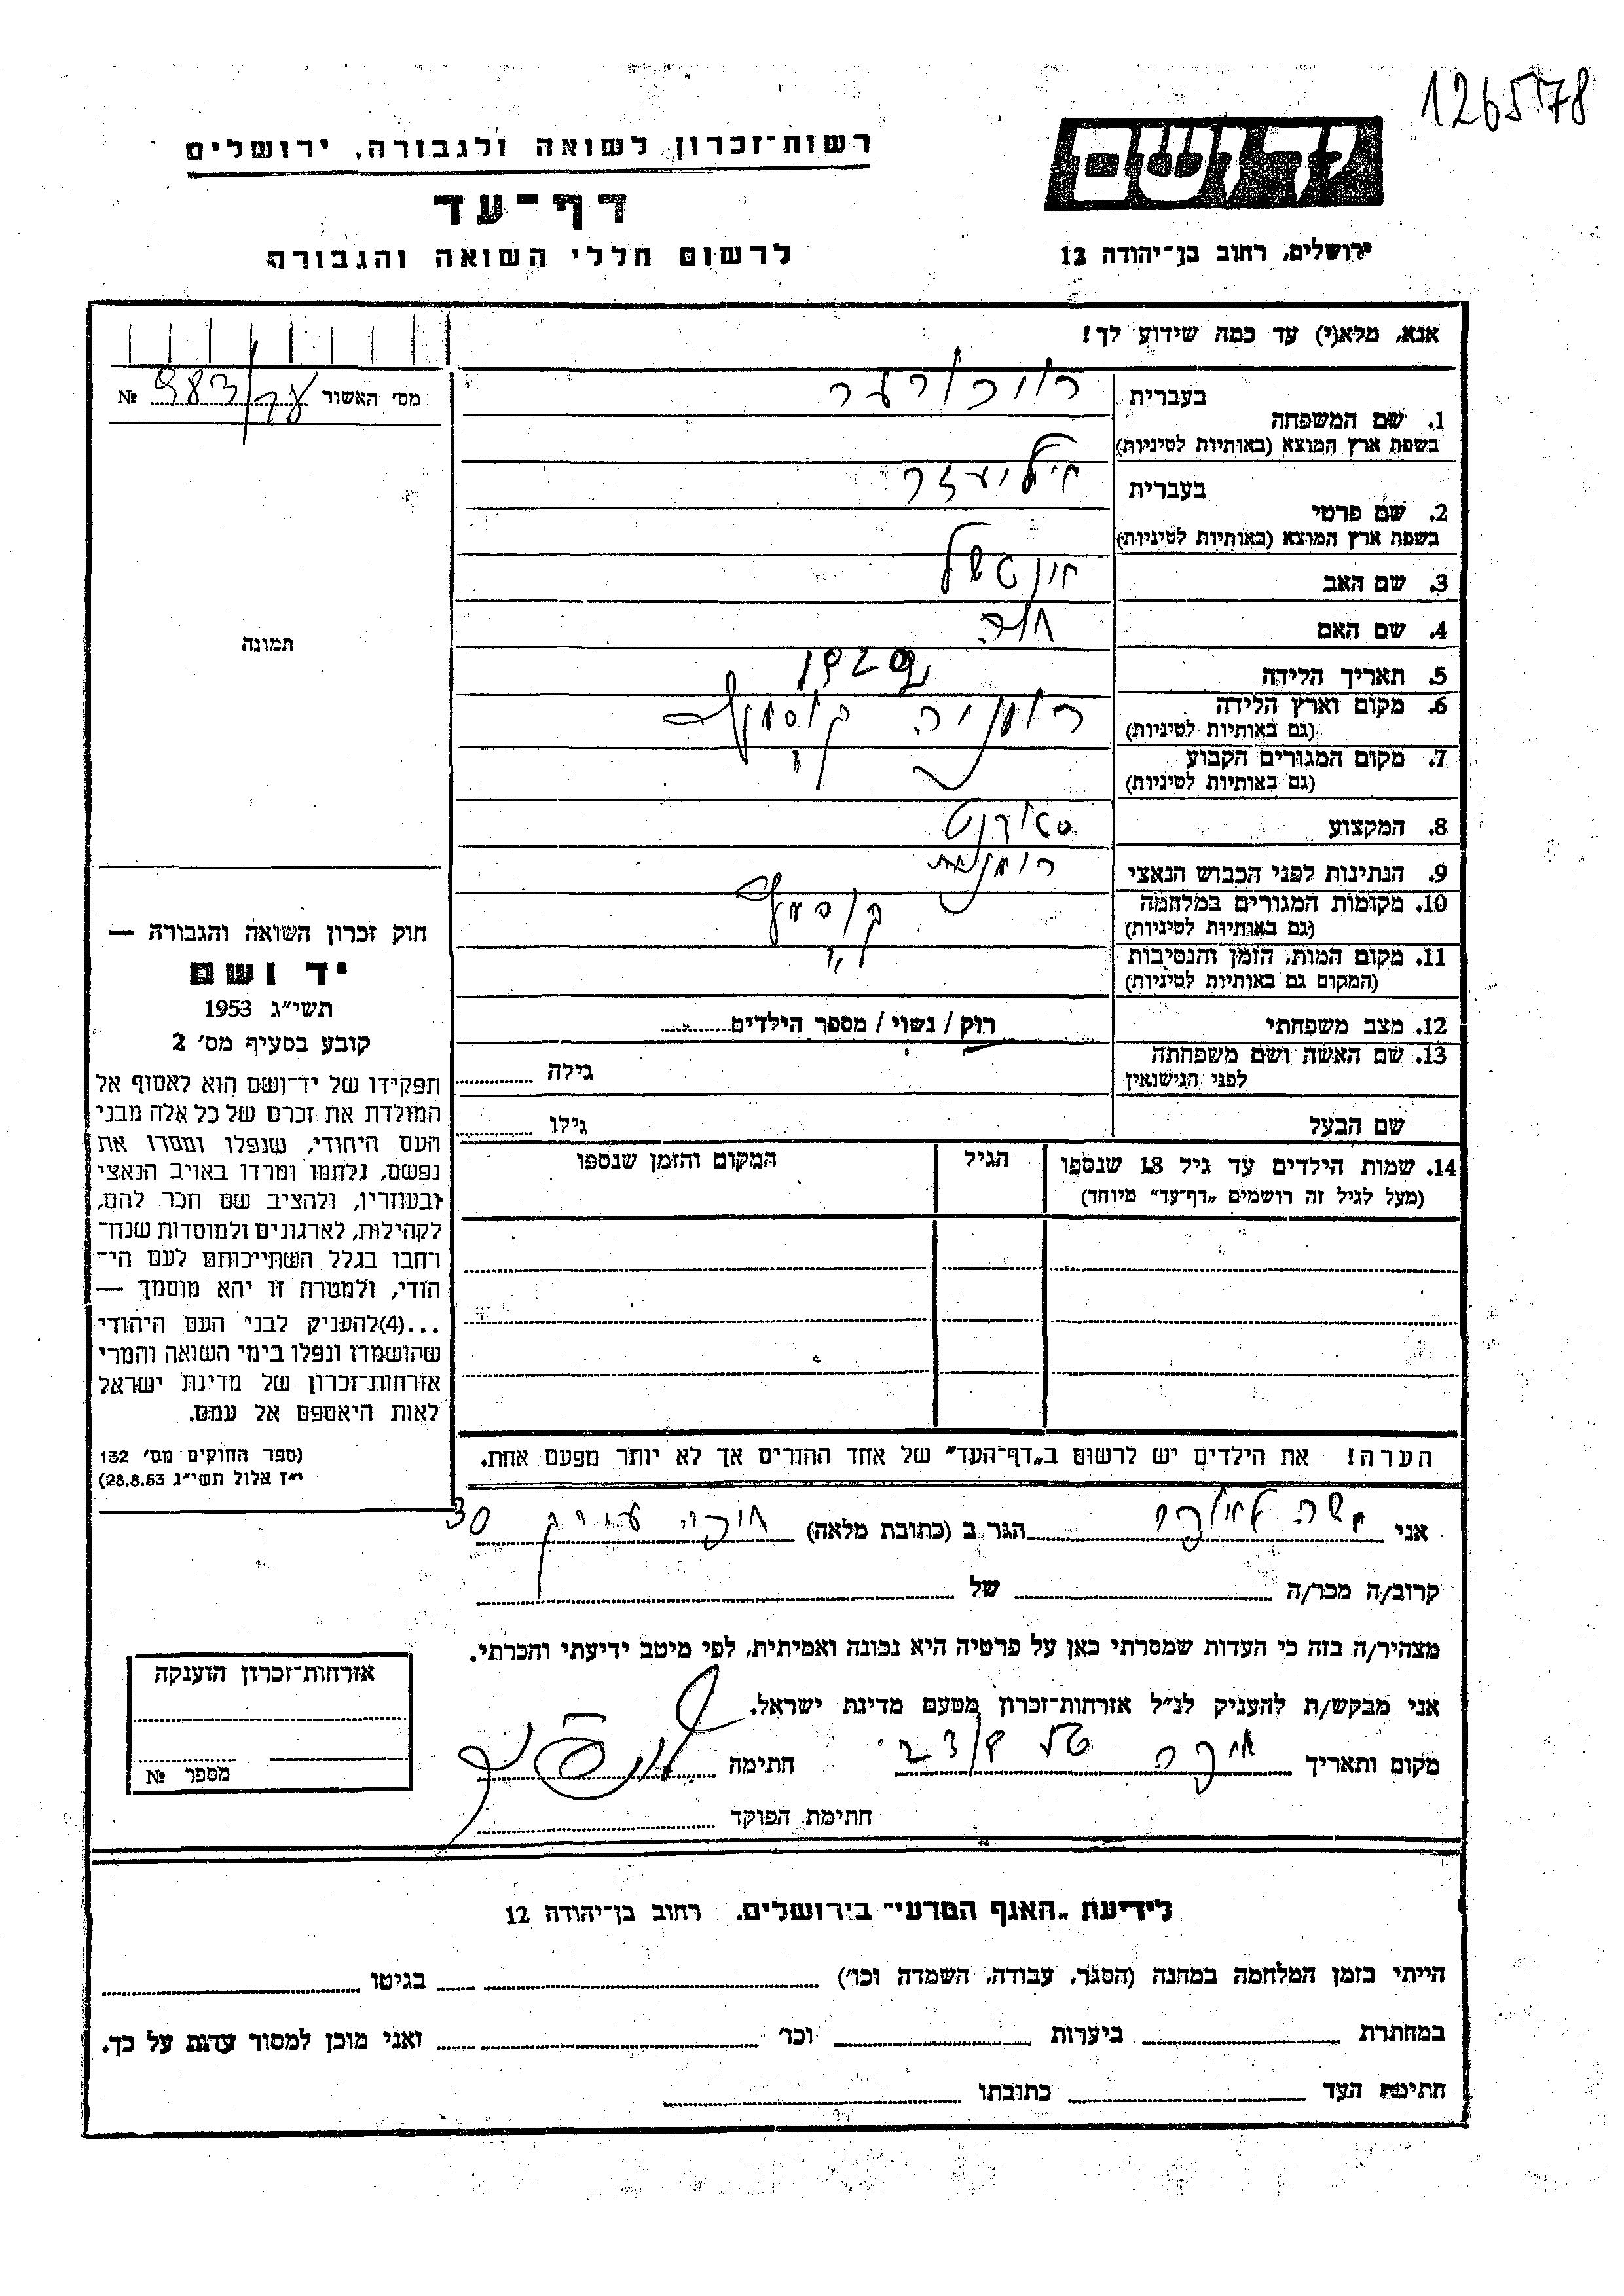 126578
רשות־זכרון לשואה ולגבורה, ירושלים
יד ושם
דף־עד
לרשום חללי השואה והגבורה
ירושלים, רחוב בן־יהודה 12
אנא, מלא(י) עד כמה שידוע לך!
מס׳ האשור №
1. שם המשפחה בעברית
בשפת ארץ המוצא (באותיות לטיניות)
2. שם פרטי בעברית
בשפת ארץ המוצא (באותיות לטיניות)
3. שם האב
4. שם האם חוה
5. תאריך הלידה
6. מקום וארץ הלידה רומניה
(גם באותיות לטיניות)
7. מקום המגורים הקבוע
(גם באותיות לטיניות)
8. המקצוע
9. הנתינות לפני הכבוש הנאצי רומנית
10. מקומות המגורים במלחמה
(גם באותיות לטיניות)
11. מקום המות, הזמן והנסיבות
(המקום גם באותיות לטיניות)
12. מצב משפחתי רווק / נשוי / מספר הילדים
13. שם האשה ושם משפחתה גילה
לפני הנישואין
שם הבעל גילו
14. שמות הילדים עד גיל 18 שנספו הגיל המקום והזמן שנספו
(מעל לגיל זה רושמים „דף־עד״ מיוחד)
הערה! את הילדים יש לרשום ב„דף־העד״ של אחד ההורים אך לא יותר מפעם אחת.
תמונה
חוק זכרון השואה והגבורה —
יד ושם
תשי״ג 1953
קובע בסעיף מס׳ 2
תפקידו של יד־ושם הוא לאסוף אל
המולדת את זכרם של כל אלה מבני
העם היהודי, שנפלו ומסרו את
נפשם, נלחמו ומרדו באויב הנאצי
ובעוזריו, ולהציב שם וזכר להם,
לקהילות, לארגונים ולמוסדות שנח־
רחבו בגלל השתייכותם לעם הי־
הודי, ולמטרה זו יהא מוסמך —
...(4)להעניק לבני העם היהודי
שהושמדו ונפלו בימי השואה והמרי
אזרחות־זכרון של מדינת ישראל
לאות היאספם אל עמם.
(ספר החוקים מס׳ 132
י״ז אלול תשי״ג 28.8.53)
אני משה הגר ב (כתובת מלאה) 30
קרוב/ה מכר/ה של
מצהיר/ה בזה כי העדות שמסרתי כאן על פרטיה היא נכונה ואמיתית, לפי מיטב ידיעתי והכרתי.
אני מבקש/ת להעניק לנ״ל אזרחות־זכרון מטעם מדינת ישראל.
מקום ותאריך חתימה
חתימת הפוקד
אזרחות־זכרון הוענקה
מספר №
לידיעת „האגף המדעי״ בירושלים, רחוב בן־יהודה 12
הייתי בזמן המלחמה במחנה (הסגר, עבודה, השמדה וכו׳) בגיטו
במחתרת ביערות וכו׳ ואני מוכן למסור עדות על כך.
חתימת העד כתובתו